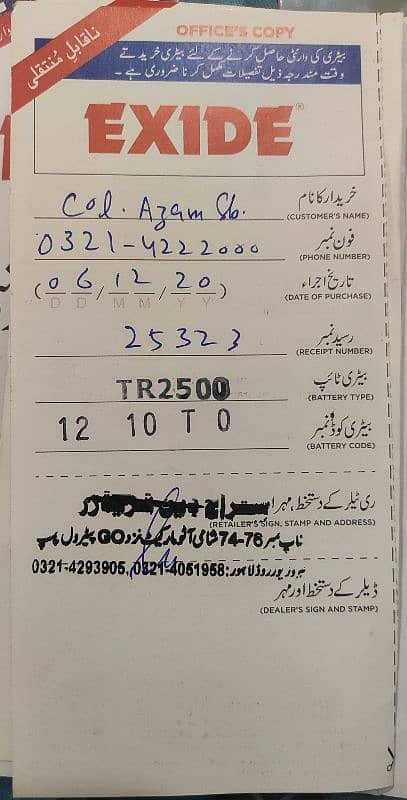 OFFICE'S COPY
ناقابلِ مُنتقلی
بیٹری کی وارنٹی حاصل کرنے کے لئے بیٹری خریدتے
وقت مندرجہ ذیل تفصیلات مکمل کرنا ضروری ہے۔
EXIDE®
خریدار کا نام
(CUSTOMER'S NAME)
Col. Azam Sb.
فون نمبر
(PHONE NUMBER)
0321-4222000
تاریخ اجراء
(DATE OF PURCHASE)
(06/12/20)
D D M M Y Y
رسید نمبر
(RECEIPT NUMBER)
25323
بیٹری ٹائپ
(BATTERY TYPE)
TR2500
بیٹری کوڈ نمبر
(BATTERY CODE)
12 10 T 0
ری ٹیلر کے دستخط، مہر
(RETAILER'S SIGN, STAMP AND ADDRESS)
شاپ نمبر 74-76 شامی آٹو مارکیٹ نزد GO پیٹرول پمپ
فیروزپور روڈ لاہور: 0321-4051958, 0321-4293905
ڈیلر کے دستخط اور مہر
(DEALER'S SIGN AND STAMP)